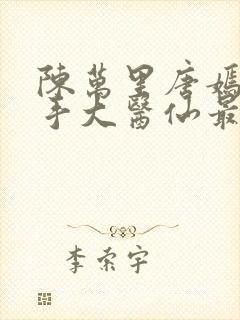 陳萬里唐嫣
手大醫仙最
李索宇